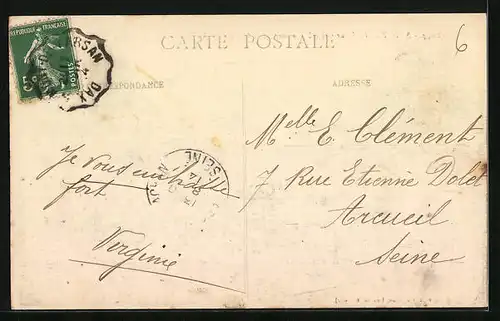 6
REPUBLIQUE FRANÇAISE
POSTES
CARTE POSTALE
RESPONDANCE
ADRESSE
Melle E. Clément
7 Rue Etienne Dolet
Arcueil
Seine
Je vous embrasse
fort
Virginie
RSAN
DAX
SEINE
14